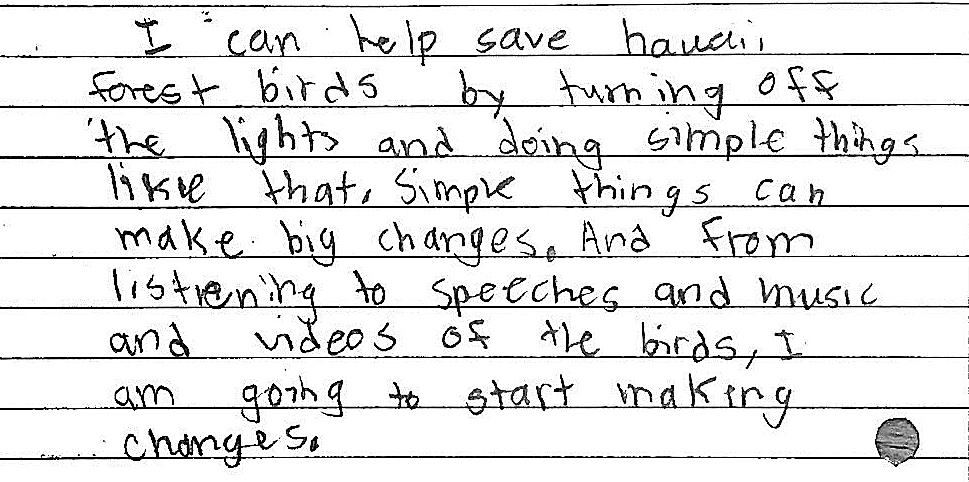 I can help save hawaii
forest birds by turning off
the lights and doing simple things
like that. Simple things can
make big changes. And from
listening to speeches and music
and videos of the birds, I
am going to start making
changes.